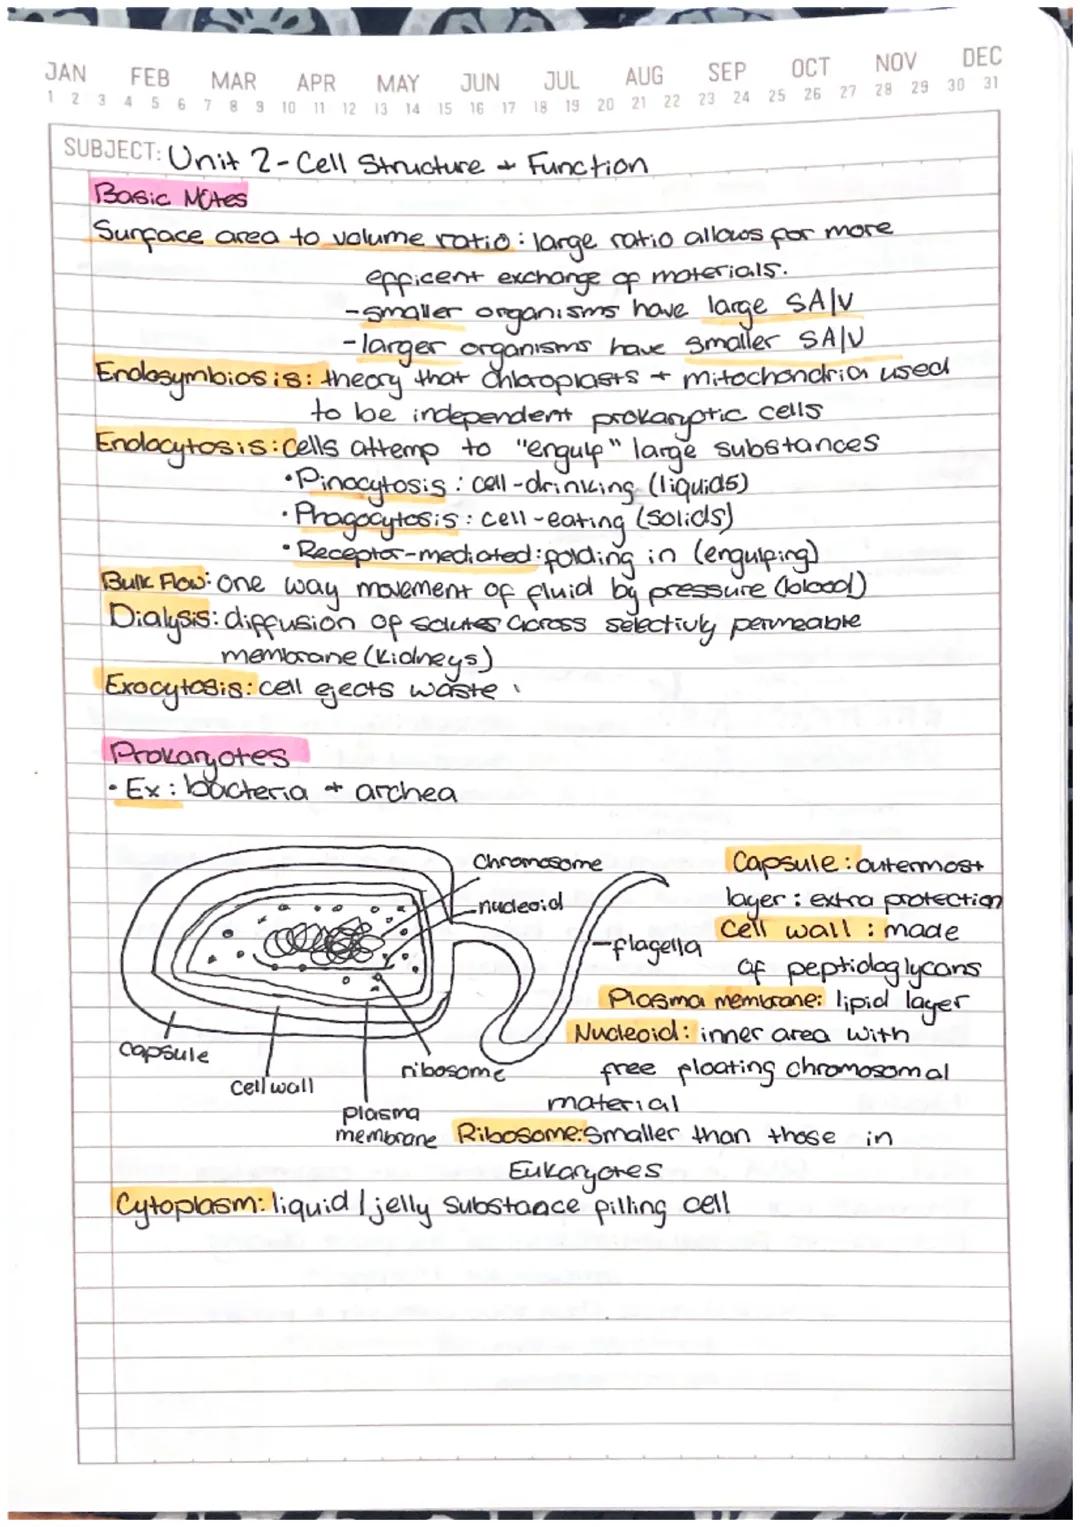 JAN FEB MAR APR MAY JUN JUL AUG SEP OCT NOV DEC
1 2 3 4 5 6 7 8 9 10 11 12 13 14 15 16 17 18 19 20 21 22 23 24 25 26 27 28 29 30 31
SUBJECT: Unit 2 - Cell Structure + Function
Basic Notes
Surface area to volume ratio: large ratio allows for more
efficent exchange of materials.
- smaller organisms have large SA/V
- larger organisms have smaller SA/V
Endosymbiosis: theory that chloroplasts + mitochondria used
to be independent prokaryotic cells
Endocytosis: cells attemp to "engulf" large substances
• Pinocytosis: cell-drinking (liquids)
• Phagocytosis: cell-eating (solids)
• Receptor-mediated: folding in (engulfing)
Bulk Flow: one way movement of fluid by pressure (blood)
Dialysis: diffusion of solutes across selectivly permeable
membrane (kidneys)
Exocytosis: cell ejects waste
Prokaryotes
• Ex: bacteria + archea
Chromosome
nucleoid
flagella
capsule
cell wall
plasma
membrane
ribosome
Capsule: outermost
layer: extra protection
Cell wall: made
of peptidoglycans
Plasma membrane: lipid layer
Nucleoid: inner area with
free floating chromosomal
material
Ribosome: smaller than those in
Eukaryotes
Cytoplasm: liquid / jelly substance filling cell